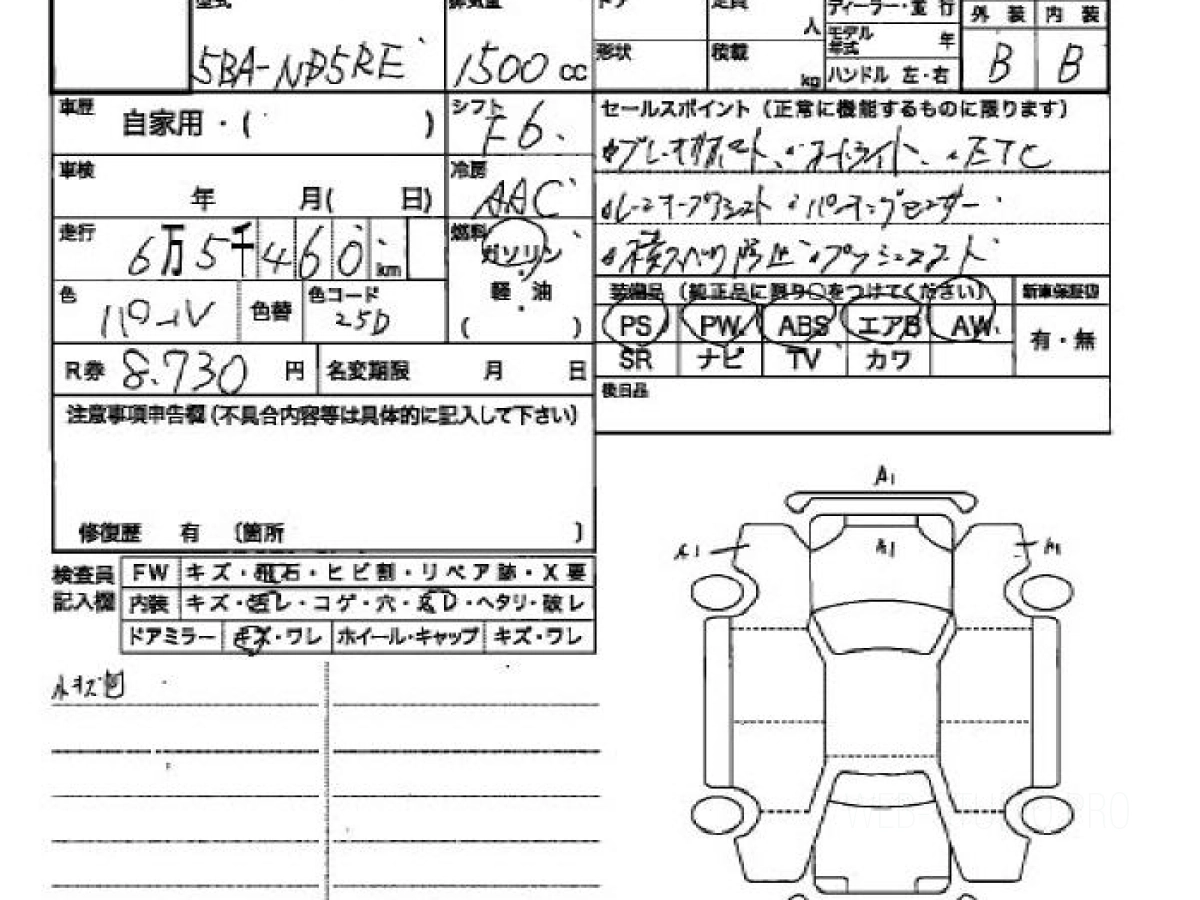 型式 排気量 ドア 定員 人 ディーラー・並行 外装 内装
5BA-ND5RE 1500 cc 形状 積載 kg モデル年式 年 B B
ハンドル 左・右
車歴 自家用・( ) シフト F6 セールスポイント (正常に機能するものに限ります)
ETC
車検 年 月( 日) 冷房 AAC
走行 6万5千460 km 燃料 ガソリン
軽・油
( )
装備品 (純正品に限り○をつけてください) 新車保証書
色 色替 色コード 25D
PS PW ABS エアB AW 有・無
SR ナビ TV カワ
R券 8.730 円 名変期限 月 日
後日品
注意事項申告欄(不具合内容等は具体的に記入して下さい)
修復歴 有 〔箇所 〕
検査員記入欄
FW キズ・飛石・ヒビ割・リペア跡・X要
内装 キズ・汚レ・コゲ・穴・ネジ・ヘタリ・破レ
ドアミラー キズ・ワレ ホイール・キャップ キズ・ワレ
A1
A1 A1 A1
小キズ凹